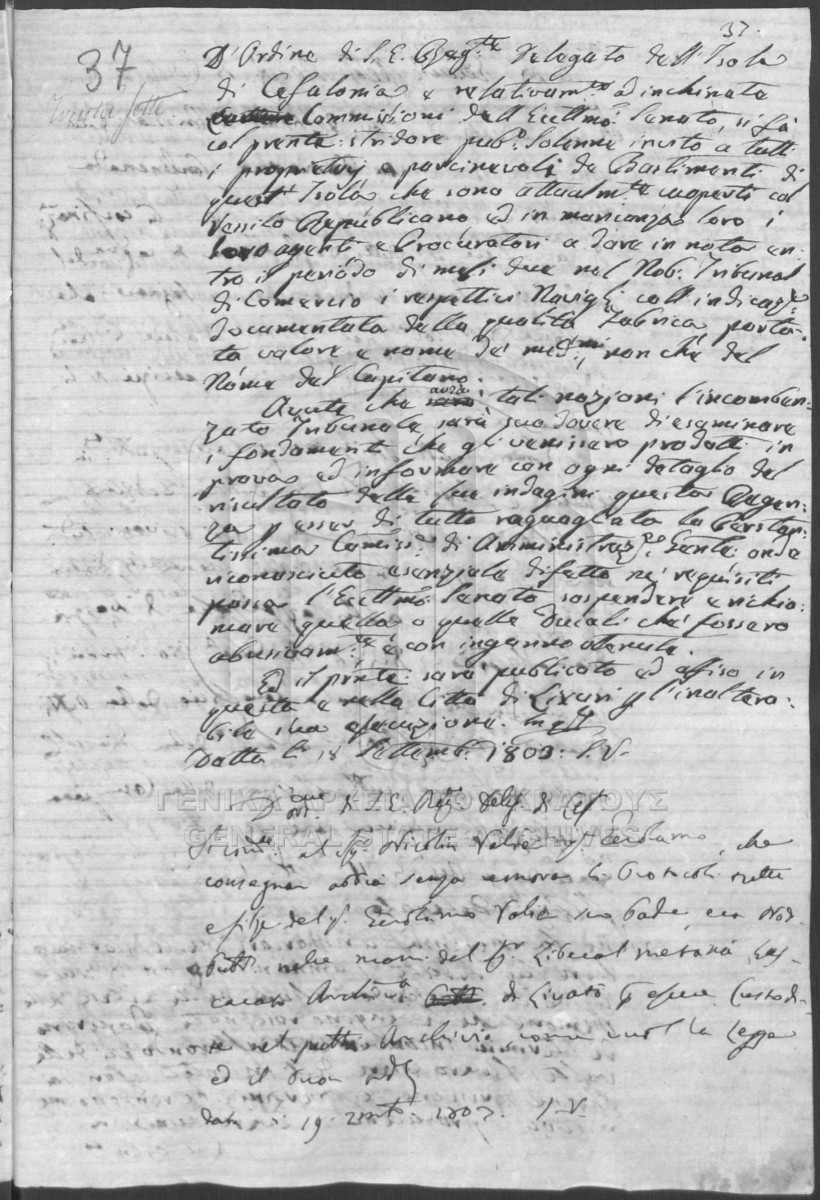 37.
37
D'Ordine di S. E. Regg.te Delegato dell'Isola
di Cefalonia e relativam.te ad inchinata
Commissioni dell'Eccellmo Senato, si fà
col prente stridore pub.o Solenne invito a tutti
i proprietarj e parcinevoli de Bastimenti di
quest'Isola che sono attualm.te coperti col
Vessilo Republicano, ed in mancanza loro i
loro agenti e Procuratori a dare in nota en-
tro il periodo di mesi due nel Nob. Tribunal
di Comercio i respettivi Navigli coll'indicaz.e
documentata della qualità Fabrica, porta-
ta valore e nome de' med.mi, non che del
Nome del Capitano.
Avute che avrà tali nozioni l'incomben-
zato Tribunale sarà suo dovere di esaminare
i fondamenti che gli venissero prodotti in
prova ed informare con ogni detaglio del
risultato delle sue indagini questa Regen-
za p esser di tutto raguagliata la Prestan-
tissima Comiss.e di Amministraz.e Gente onde
riconosciuto esenziale difetto ne' requisiti
possa l'Eccellmo Senato sospendere e richia-
mare quella o quelle Ducali che fossero
abusivam.te e con inganno otenute.
Ed il prnte sarà publicato ed affiso in
questa e nella Città di Lixuri p l'inaltera-
bile sua esecuzione. In q.m
Datta li 18 Settemb. 1803. S. V.
ΓΕΝΙΚΑ ΑΡΧΕΙΑ ΤΟΥ ΚΡΑΤΟΥΣ
GENERAL STATE ARCHIVES
D'ord. di S. E. Reg. Deleg. di Cef.
al Sig. Nicolin Valsa che
consegnar abbia senza remora li Protocoli tutti
e filze del q. Gerolimo Valsa suo Padre
nelle mani del Sr Liberal Metaxà
di Livatò p esser Custodi-
te nel Archivio come vuol la Legge
ed il buon
data li 19 1803. S. V.